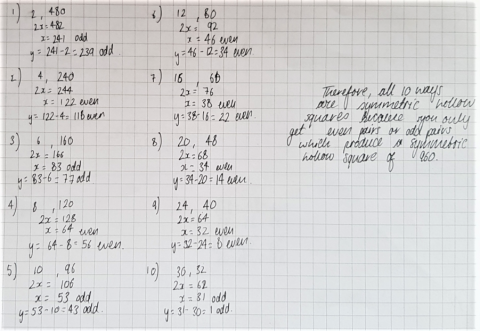 1) 2, 480
2x = 482
x = 241 odd
y = 241-2 = 239 odd
2) 4, 240
2x = 244
x = 122 even
y = 122-4 = 118 even
3) 6, 160
2x = 166
x = 83 odd
y = 83-6 = 77 odd
4) 8, 120
2x = 128
x = 64 even
y = 64-8 = 56 even.
5) 10, 96
2x = 106
x = 53 odd
y = 53-10 = 43 odd.
6) 12, 80
2x = 92
x = 46 even
y = 46-12 = 34 even.
7) 16, 60
2x = 76
x = 38 even
y = 38-16 = 22 even.
8) 20, 48
2x = 68
x = 34 even
y = 34-20 = 14 even.
9) 24, 40
2x = 64
x = 32 even
y = 32-24 = 8 even.
10) 30, 32
2x = 62
x = 31 odd
y = 31-30 = 1 odd.
Therefore, all 10 ways
are symmetric hollow
squares because you only
get even pairs or odd pairs
which produce a symmetric
hollow square of 960.